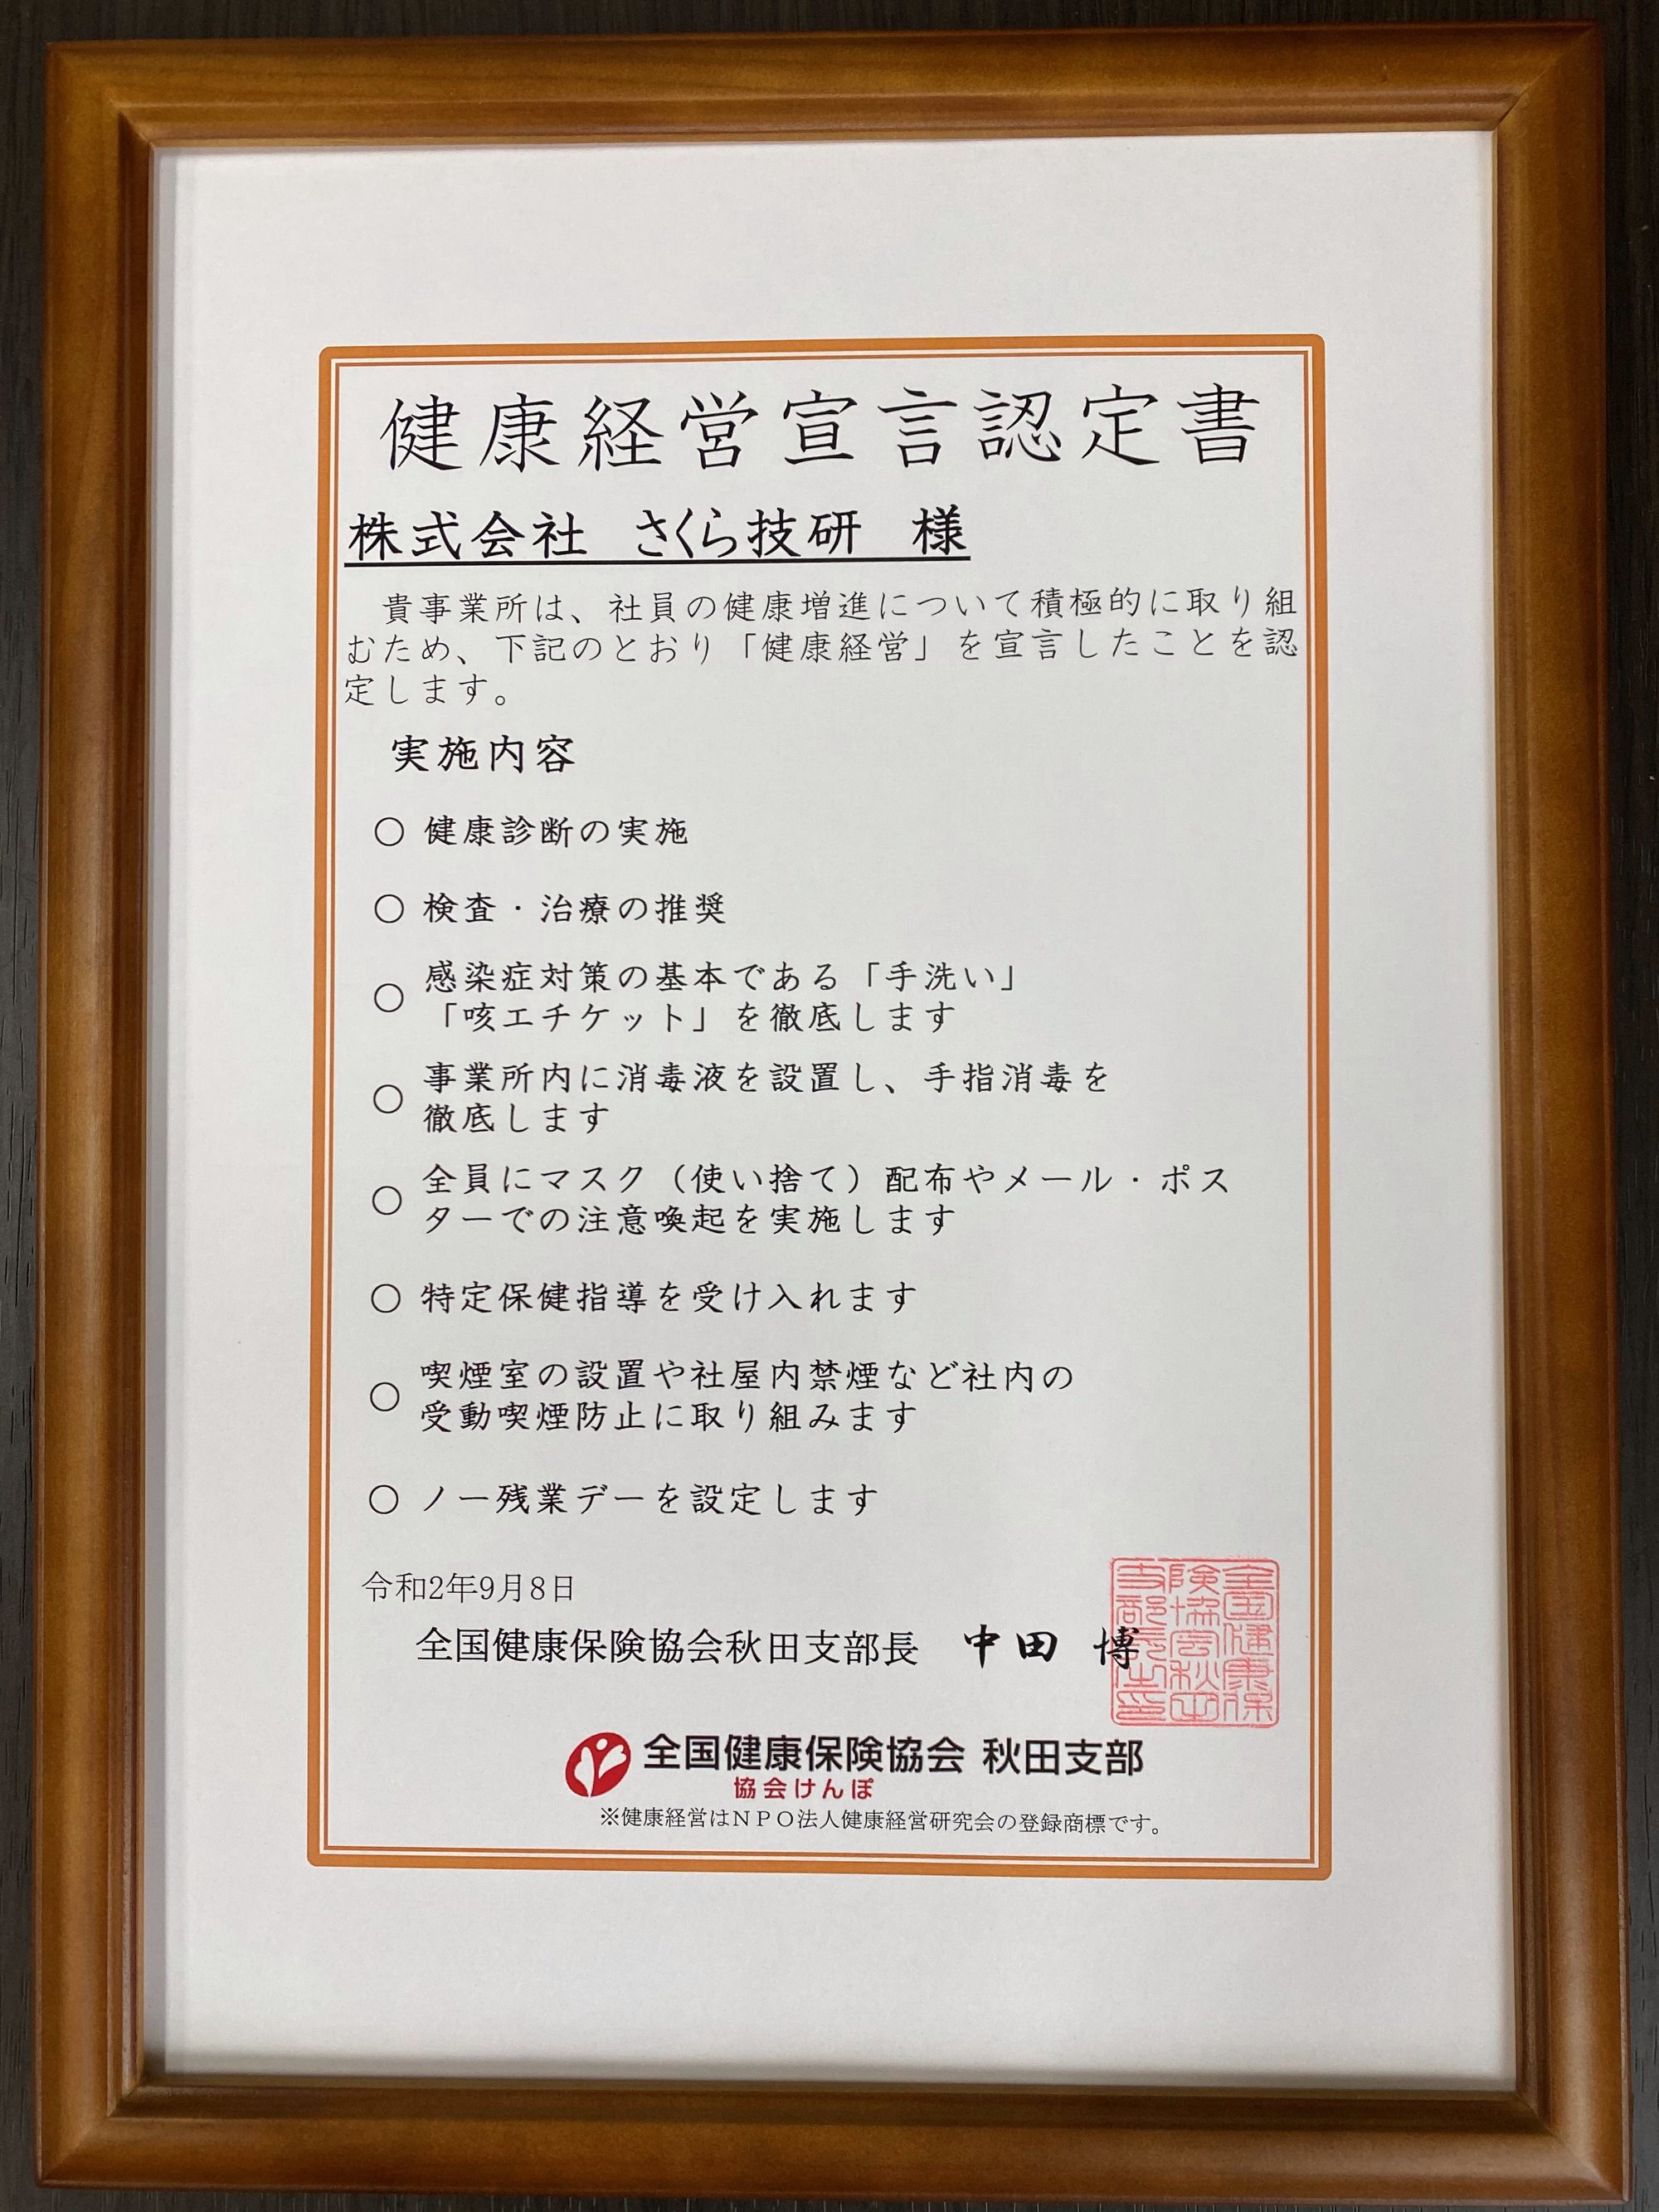 健康経営宣言認定書
株式会社　さくら技研　様
　貴事業所は、社員の健康増進について積極的に取り組
むため、下記のとおり「健康経営」を宣言したことを認
定します。
実施内容
○ 健康診断の実施
○ 検査・治療の推奨
○ 感染症対策の基本である「手洗い」
「咳エチケット」を徹底します
○ 事業所内に消毒液を設置し、手指消毒を
徹底します
○ 全員にマスク（使い捨て）配布やメール・ポス
ターでの注意喚起を実施します
○ 特定保健指導を受け入れます
○ 喫煙室の設置や社屋内禁煙など社内の
受動喫煙防止に取り組みます
○ ノー残業デーを設定します
令和2年9月8日
全国健康保険協会秋田支部長　中田　博
全国健康保
険協会秋田
支部長之印
全国健康保険協会 秋田支部
協会けんぽ
※健康経営はＮＰＯ法人健康経営研究会の登録商標です。